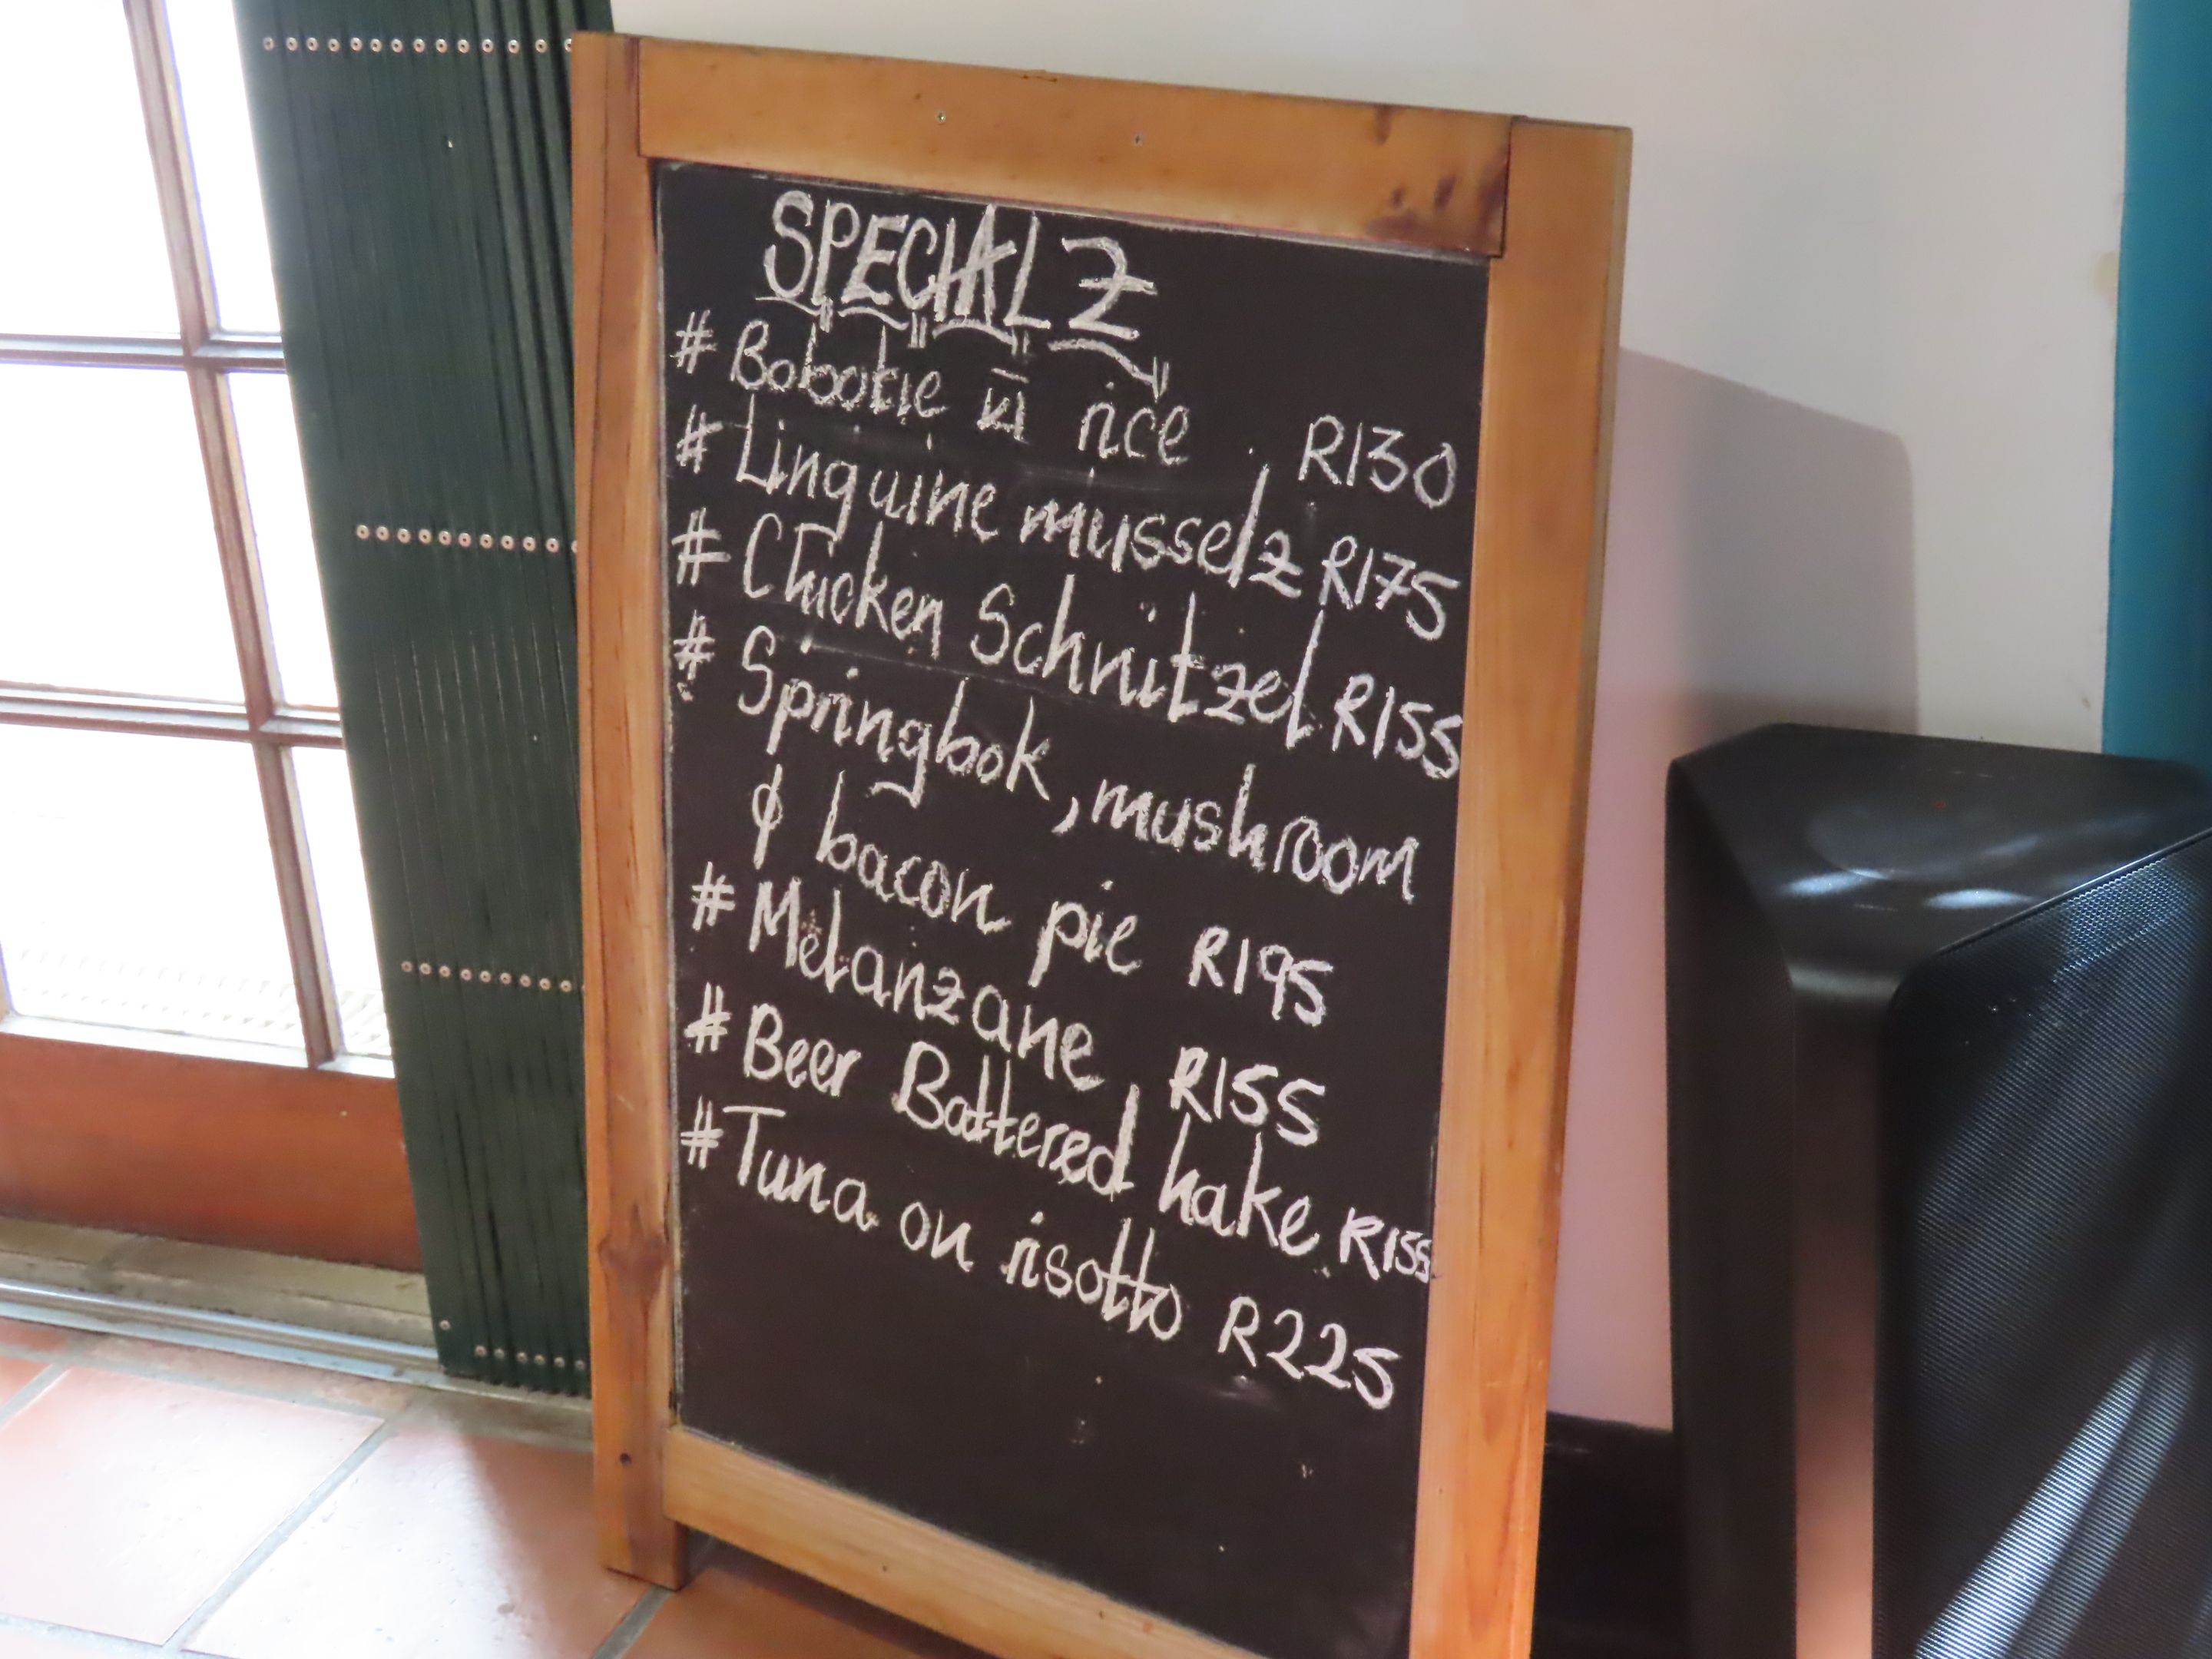 SPECIALZ
# Bobotie n̄ rice R130
# Linguine musselz R175
# Chicken Schnitzel R155
# Springbok, mushroom
& bacon pie R195
# Melanzane R155
# Beer Battered hake R155
# Tuna on risotto R225